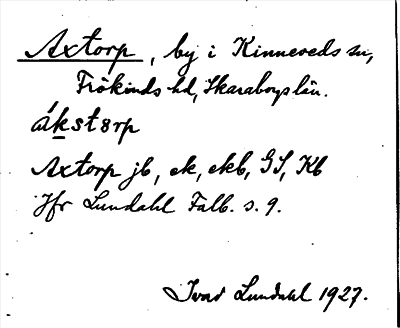 Axtorp, by i Kinneveds sn,
Frökinds hd, Skaraborgs län.
ákstørp
Axtorp jb, ek, ekb, GS, Kb
Jfr Lundahl Falb. s. 9.
Ivar Lundahl 1927.